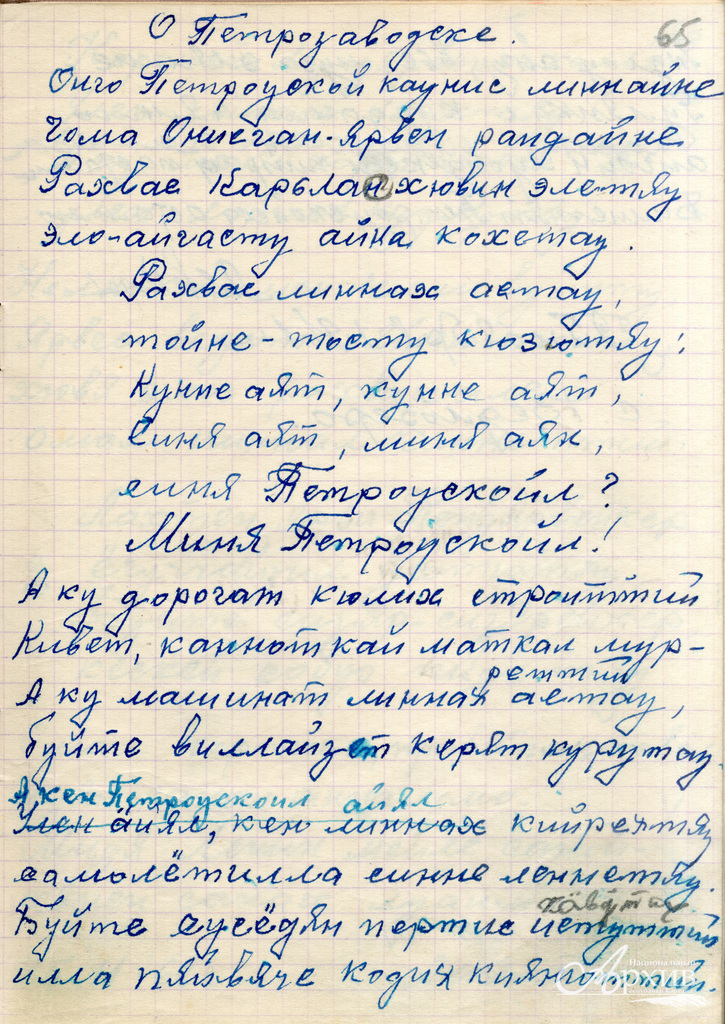 65
О Петрозаводске.
Онго Петроуской каунис линнайне
Чома Ониегган-ярвен рандайне
Рахвас Карьлан хювин элетяу
эло-айгасту айка кохетау.
Рахвас линнах астау,
тойне-тосту кюзютяу:
Кунне аят, кунне аят,
Синя аят, миня аян,
синя Петроускойл?
Миня Петроускойл!
А ку дорогат кюлих строиттих
Кивет, каннот кай маткал мур-
реттих
А ку машинат линнах астау,
буйте виллайзет керят курутау.
А кен Петроускоил айял
кен линнах кийрехтяу
самолётилла синне леннетяу.
кävутих
Буйте сусёдян пертис истуттих
илла пяйвяче кодих киянготтих.
Национальный
Архив